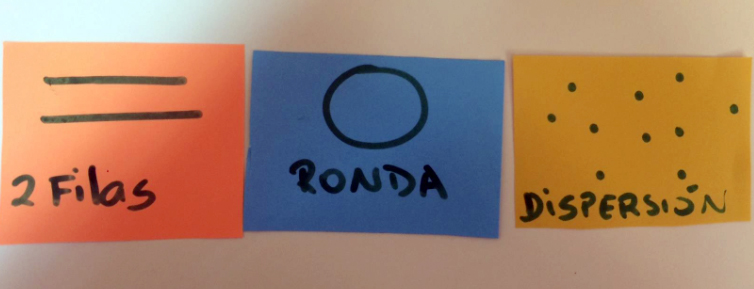 2 Filas
RONDA
DiSPERSIÓN